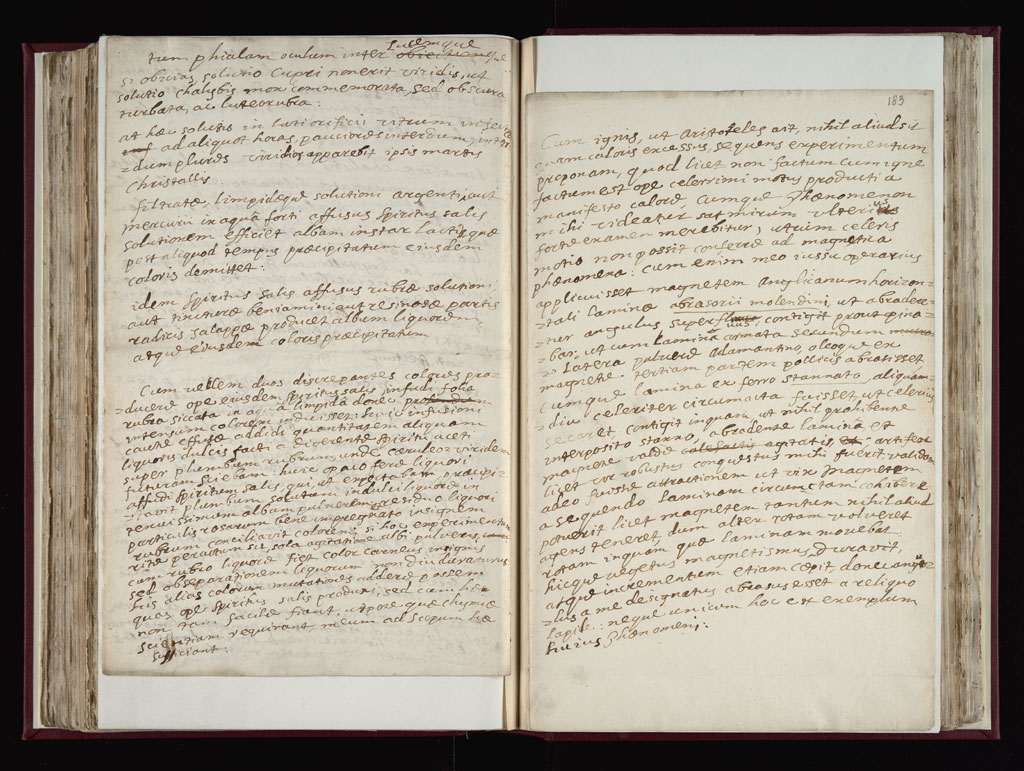 lucemque
tum phialam oculum inter
si obicias, solutio Cupri non erit viridis, ut
solutio chalybis mox commemorata, sed obscura
turbata, ac luteorubra:
at hæc solutio in lati orificii vitrum
ad aliquot horas, pauciores interdum, inter
=dum plures viridior apparebit ipsis martis
christallis
filtratæ, limpidæque solutioni argenti, aut
mercurii in aqua forti affusus spiritus salis
solutionem efficiet albam instar lactis, quæ
post aliquod tempus præcipitatum eiusdem
coloris demittet:
idem spiritus salis affusus rubiæ solutioni
aut tincturæ beniamini, aut resinosæ partis
radicis salappæ producet album liquorem
atque eiusdem coloris præcipitatum
Cum vellem duos discrepantes colores pro=
=ducere ope eiusdem spiritus salis infudi folia
rubra siccata in aqua limpida donec
intensum colorem induisset: huic infusioni
caute effusæ addidi quantitatem aliquam
liquoris dulcis facti a digerente spiritu aceti
super plumbum rubrum, unde cæruleo viridem
futuram sciebam: huic opaco fere liquori
affudi spiritum salis, qui ut expectabam præcipi=
=tavit plumbum solutum in dulci liquore in
tenuissimum album pulverem, residuo liquori
particulis rosarum bene impregnato insignem
rubrum conciliavit colorem: si hoc experimentum
rite peractum sit, sola agitatione albi pulveris,
cum rubro liquore fiet color carneus insignis
sed ob separationem liquorum non diu duraturus
his alias colorum mutationes addere possem
quas ope spiritus salis produxi, sed cum hæ
non tam facile fiant, utpote quæ chymiæ
scientiam requirant meum ad scopum hæ
sufficiant:
183
Cum ignis, ut Aristoteles ait, nihil aliud sit
quam caloris excessus, sequens experimentum
proponam, quod licet non factum cum igne
factum est ope celerrimi motus producti a
manifesto calore cumque phænomenon
mihi videatur sat mirum ulterius
forte examen merebitur, utrum celeris
motio non possit conferre ad magnetica
phænomena: cum enim meo iussu operarius
applicuisset magnetem anglicanum horizon=
=tali laminæ abrasorii molendini, ut abradere=
=tur angulus superfluus contigit prout opina=
bar, ut cum lamina armata secundum
latera pulvere adamantino, oleoque ex
magnete tertiam partem pollicis abrasisset
cumque lamina ex ferro stannato, aliquam=
=diu celeriter circumacta fuisset, ut celerius
secaret contigit inquam ut nihil prohibente
interposito stanno, abradente lamina et
magnete valde calefactis agitatis, et artifex
licet vir robustus conquestus mihi fuerit validam
adeo fuisse attractionem ut vix magnetem
a sequendo laminam circumactam cohibere
potuerit licet magnetem tantum nihil aliud
agens teneret dum alter rotam volveret
rotam inquam quæ laminam movebat
hicque vegetus magnetismus duravit,
atque incrementum etiam cæpit donec angu=
=lus a me designatus abrasus esset a reliquo
lapil: neque unicum hoc est exemplum
huius phænomeni: